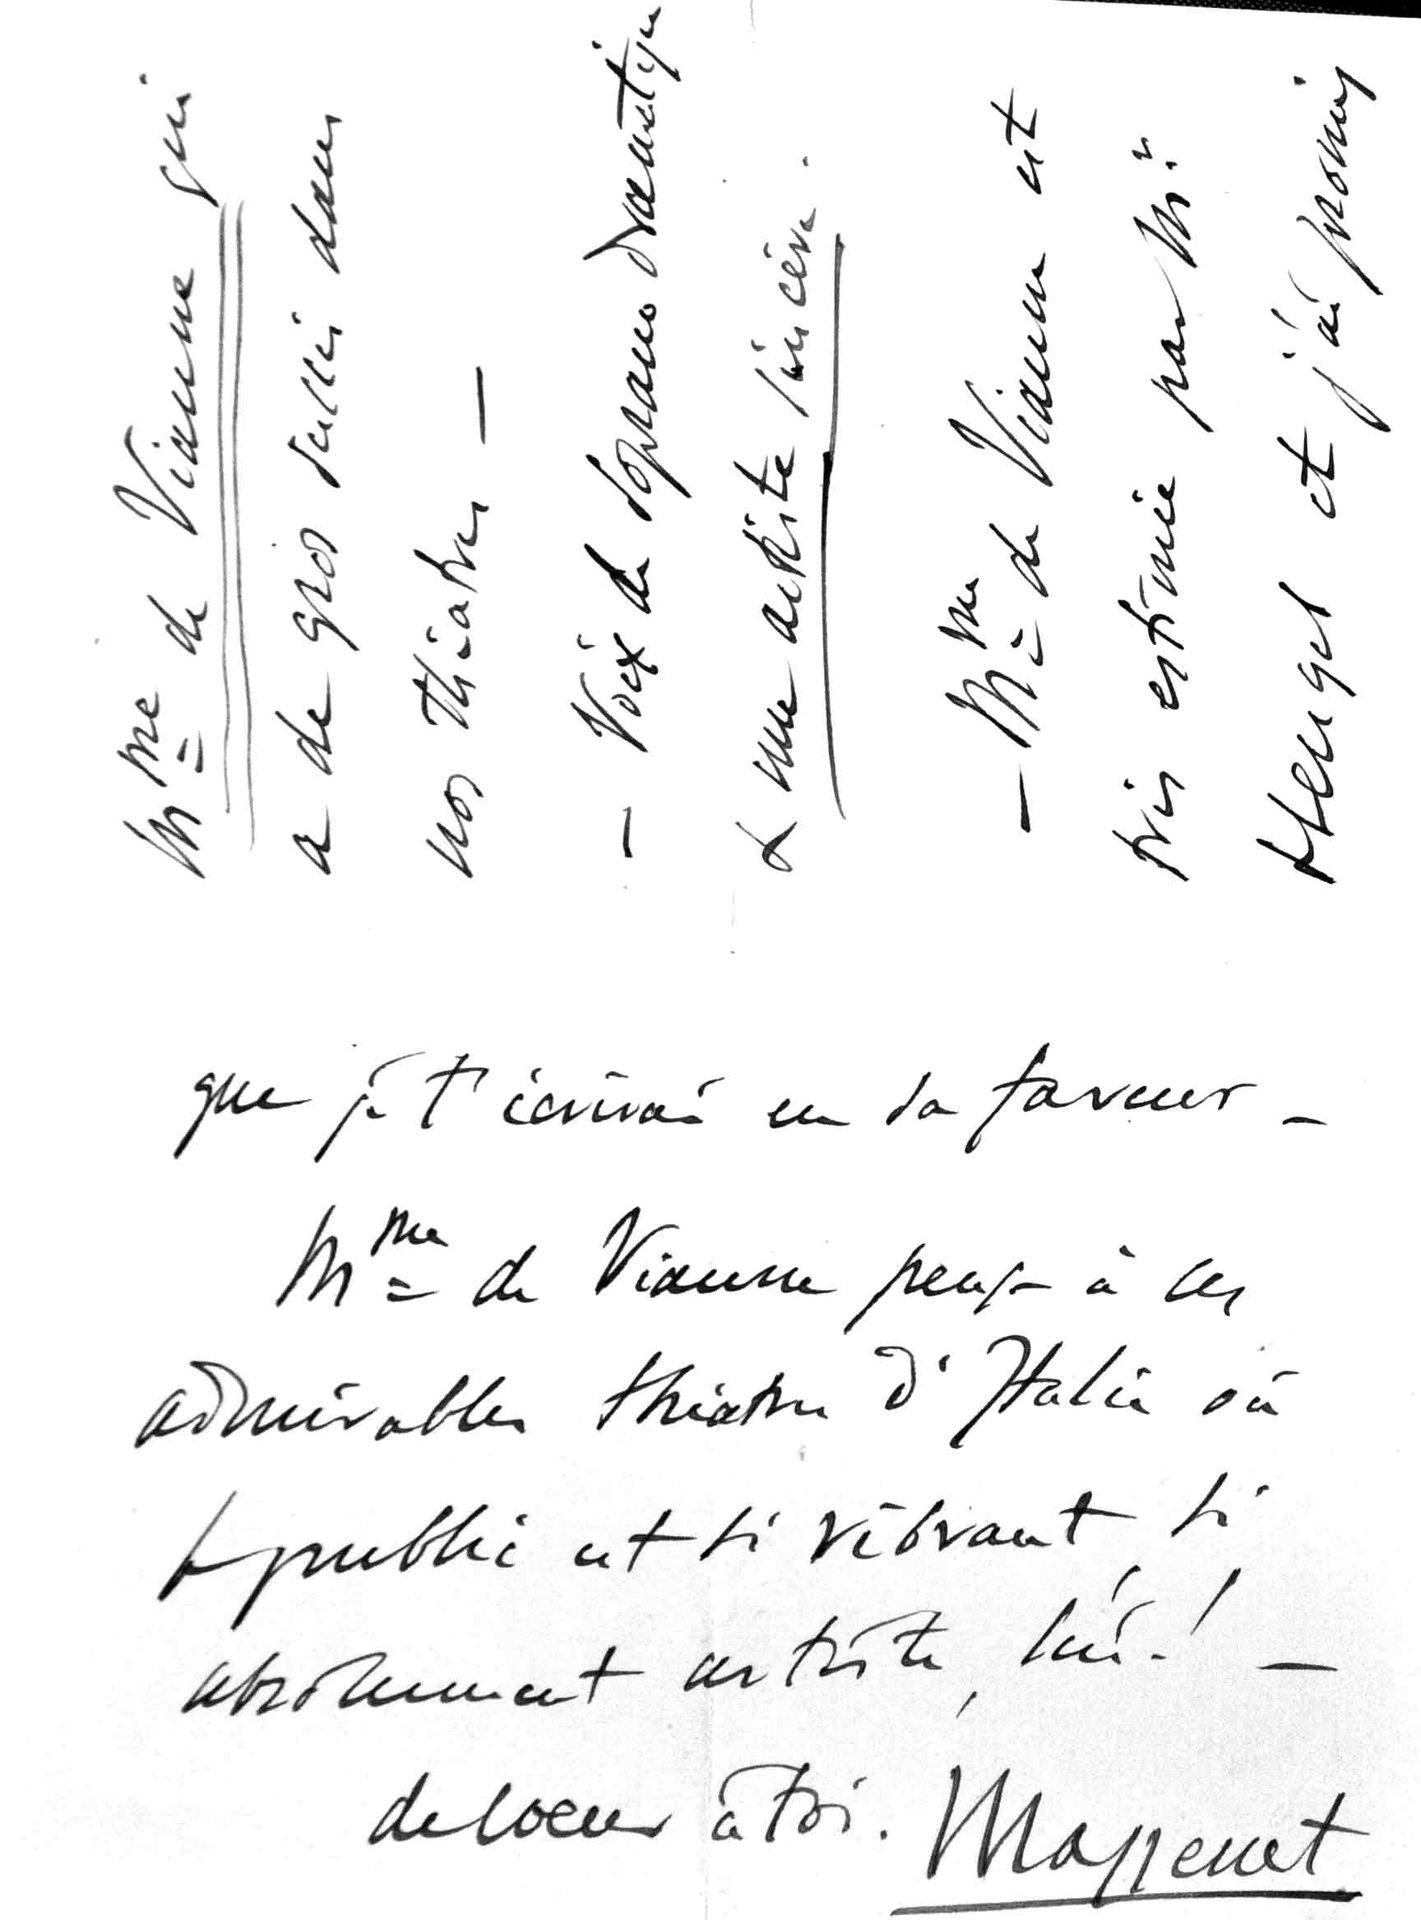 Mme de Vianne qui
a de gros succès dans
nos théâtres —
— Voix de soprano dramatique
& une artiste sincère.
— Mme de Vianne est
très estimée par Mr
Heugel et j'ai promis
que je t'écrirais en sa faveur —
Mme de Vianne pense à ces
admirables théâtres d'Italie où
le public est si vibrant, si
absolument artiste, lui! —
de coeur à toi. Massenet